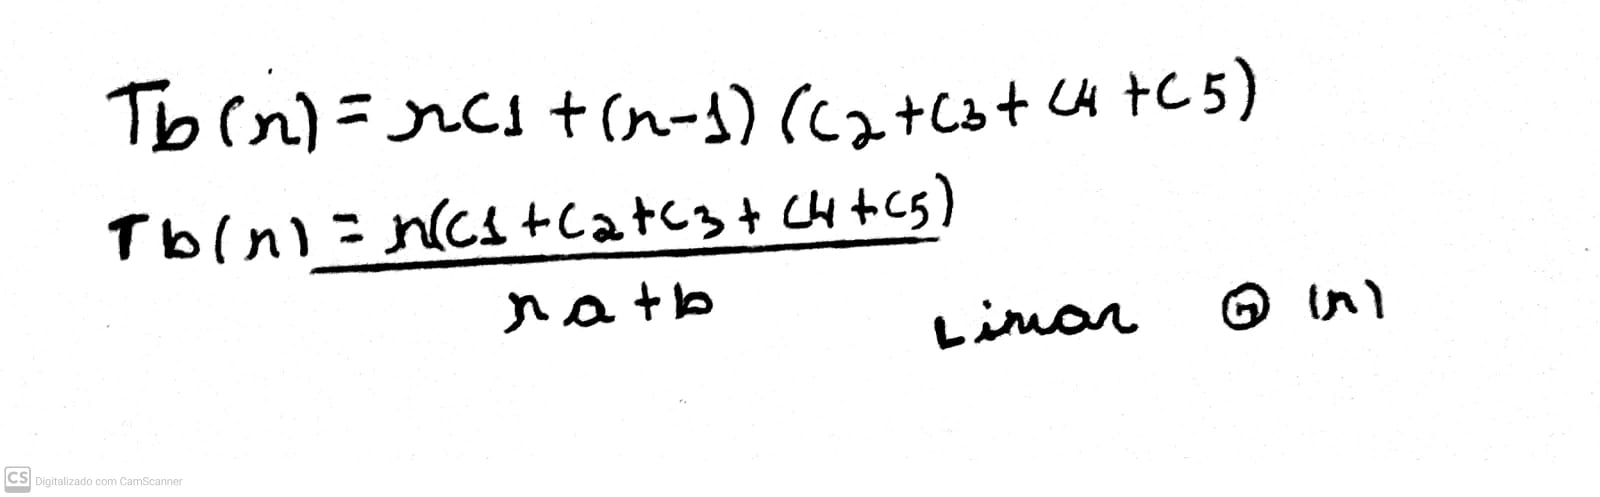 Tb(n) = nC1 + (n-1) (C2+C3+C4+C5)
Tb(n) = n(C1+C2+C3+C4+C5)
na+b
Linear Θ (n)
CS Digitalizado com CamScanner